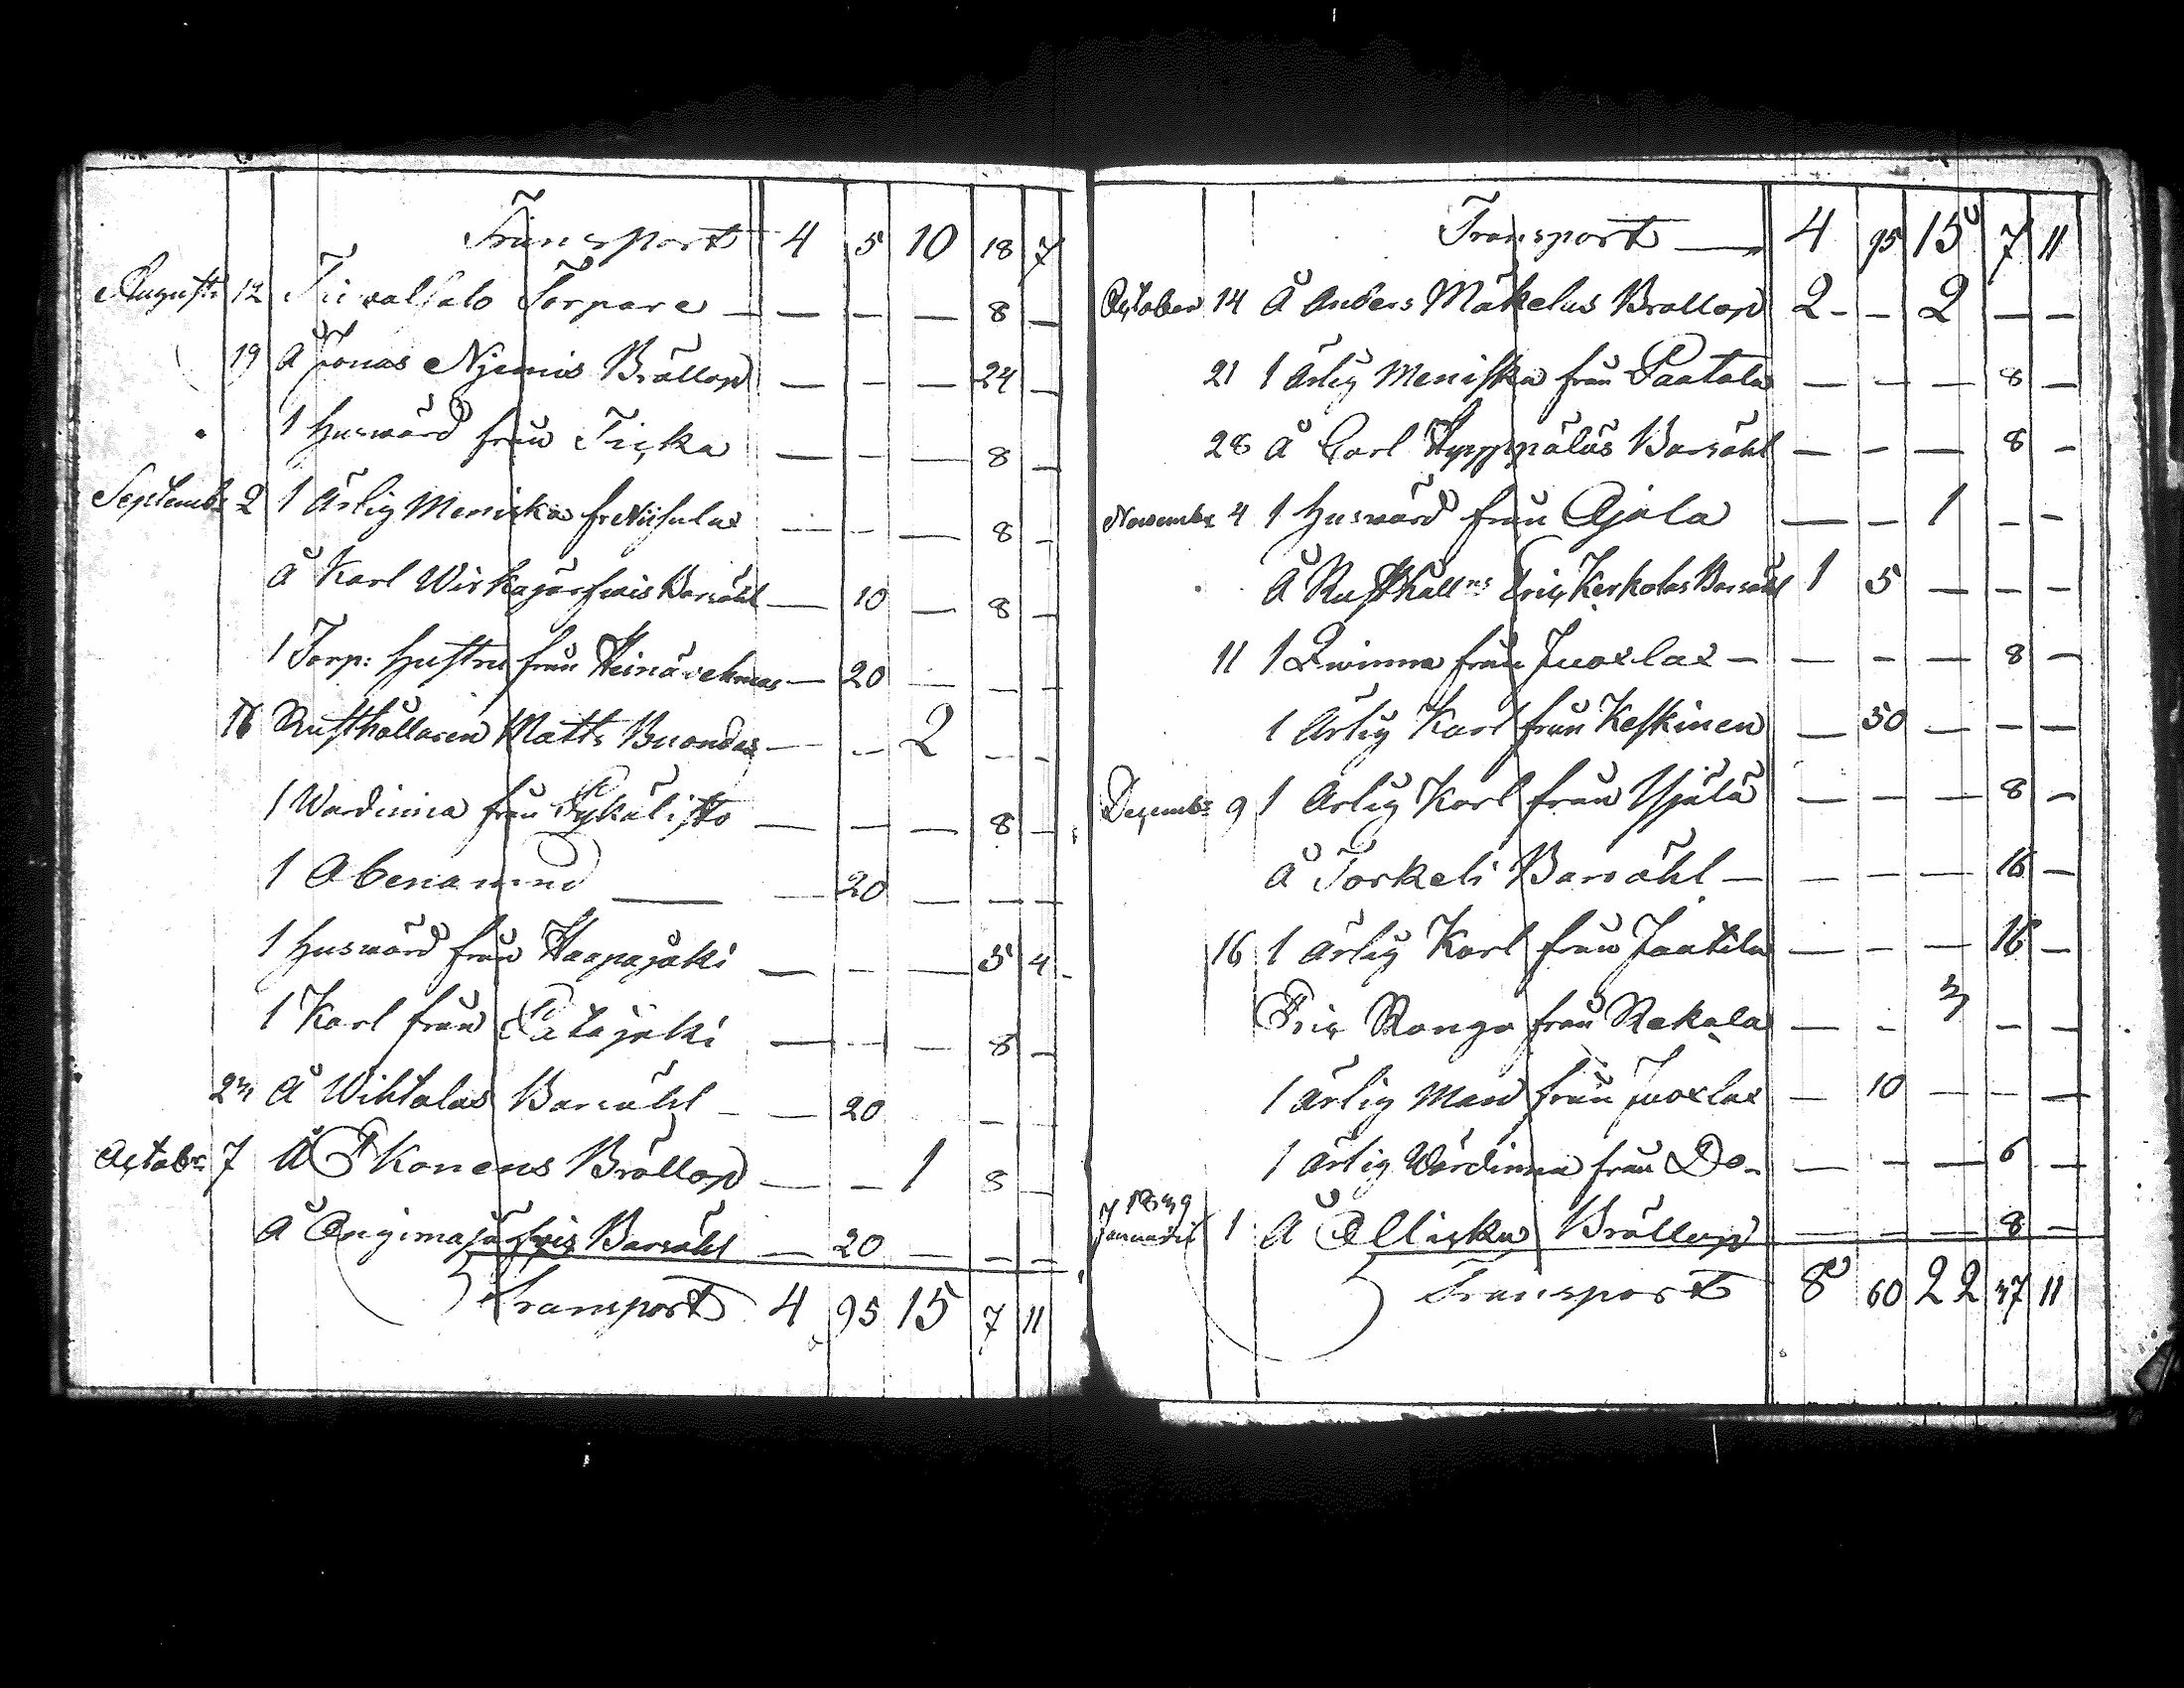 Transport 4 5 10 18 7
Augusti 12 Torpare — — — — 8 —
19 Å Jonas Njemis Bröllop — — — 24 —
1 Huswärd från Ticka — — — 8 —
Septembr 2 1 Ärlig Meniska fr — — — 8 —
Å Karl Wirkajärfwis Barsöhl — 10 — 8 —
1 Torp: Hustru från — 20 — — —
16 Rusthållaren Matts — — 2 — —
1 Wärdinna från Pykälistö — — — 8 —
1 Obenämnd — — 20 — — —
1 Huswärd från Haapajoki — — — 5 4
1 Karl från Patajoki — — — 8 —
23 Å Wihtalas Barsöhl — — 20 — —
Octobr 7 Å Ikonens Bröllop — — 1 8 —
Å Angimajärfwis Barsöhl — 20 — — —
Transport 4 95 15 7 11
Transport — 4 95 15 7 11
October 14 Å Anders Mäkeläs Bröllop 2 - 2 — —
21 1 Ärlig Meniska från Paatola — — — 8 —
28 Å Carl Hyppäläs Barsöhl — — — 8 —
Novembr 4 1 Huswärd från Ajala — — 1 — —
Å Rusthålls Eric Kerkolas Barsöhl 1 5 — — —
11 1 Qwinna från Juoxlax — — — — 8 —
1 Ärlig Karl från Keskinen — 50 — — —
Decembr 9 1 Ärlig Karl från — — — 8 —
Å Torkeli Barsöhl — — — — 16 —
16 1 Ärlig Karl från Jaatila — — — 16 —
Eric Ranga från Rekola — — 3 — —
1 Ärlig Man från Juoxlax — 10 — — —
1 Ärlig Wärdinna från Do — — — 6 —
1839
Januarii 1 Å Bröllop — — — 8 —
Transport 8 60 22 37 11